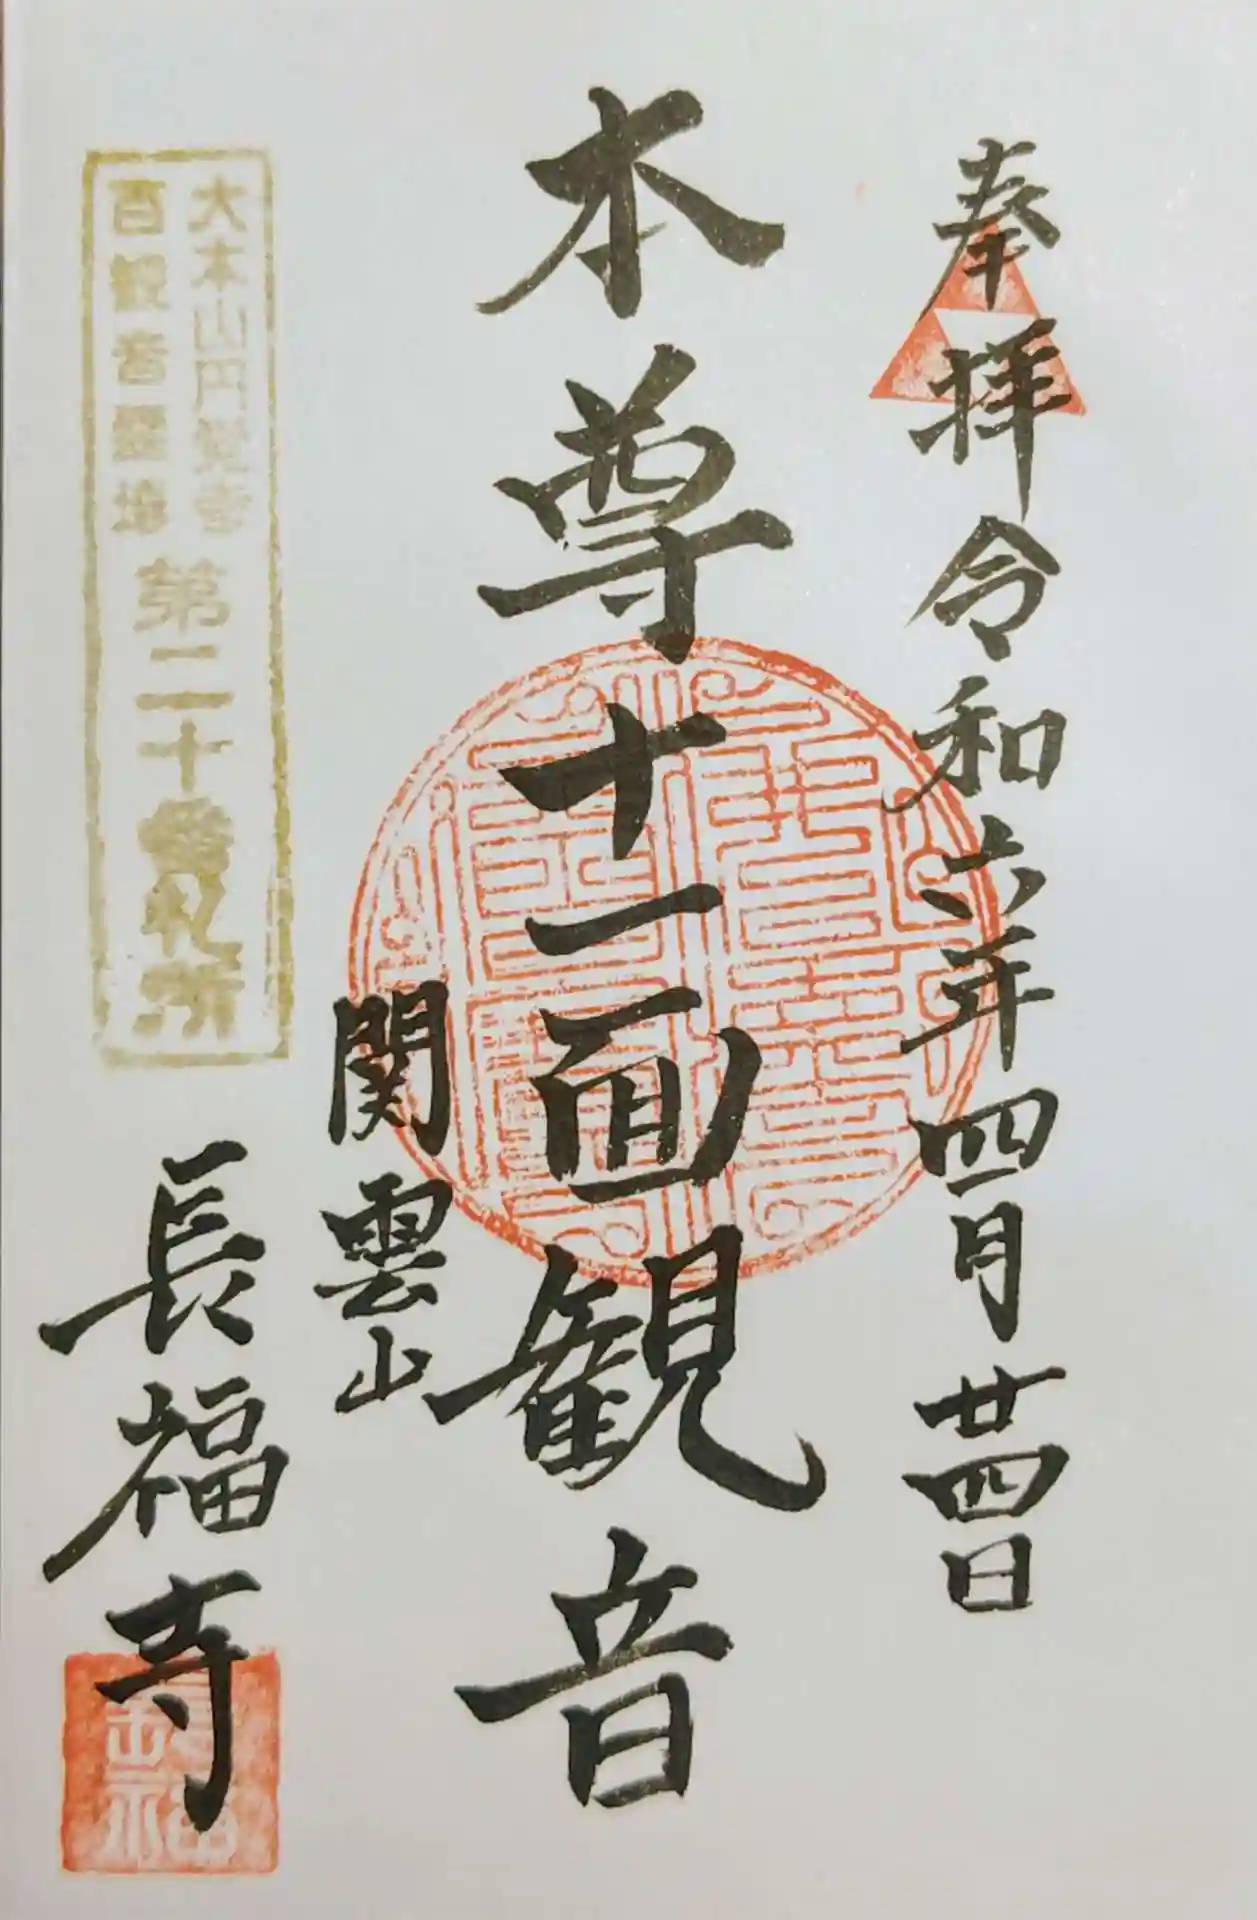 奉拝 令和六年四月廿四日
本尊十一面観音
関雲山
大本山円覚寺
百観音霊場
第二十番札所
長福寺